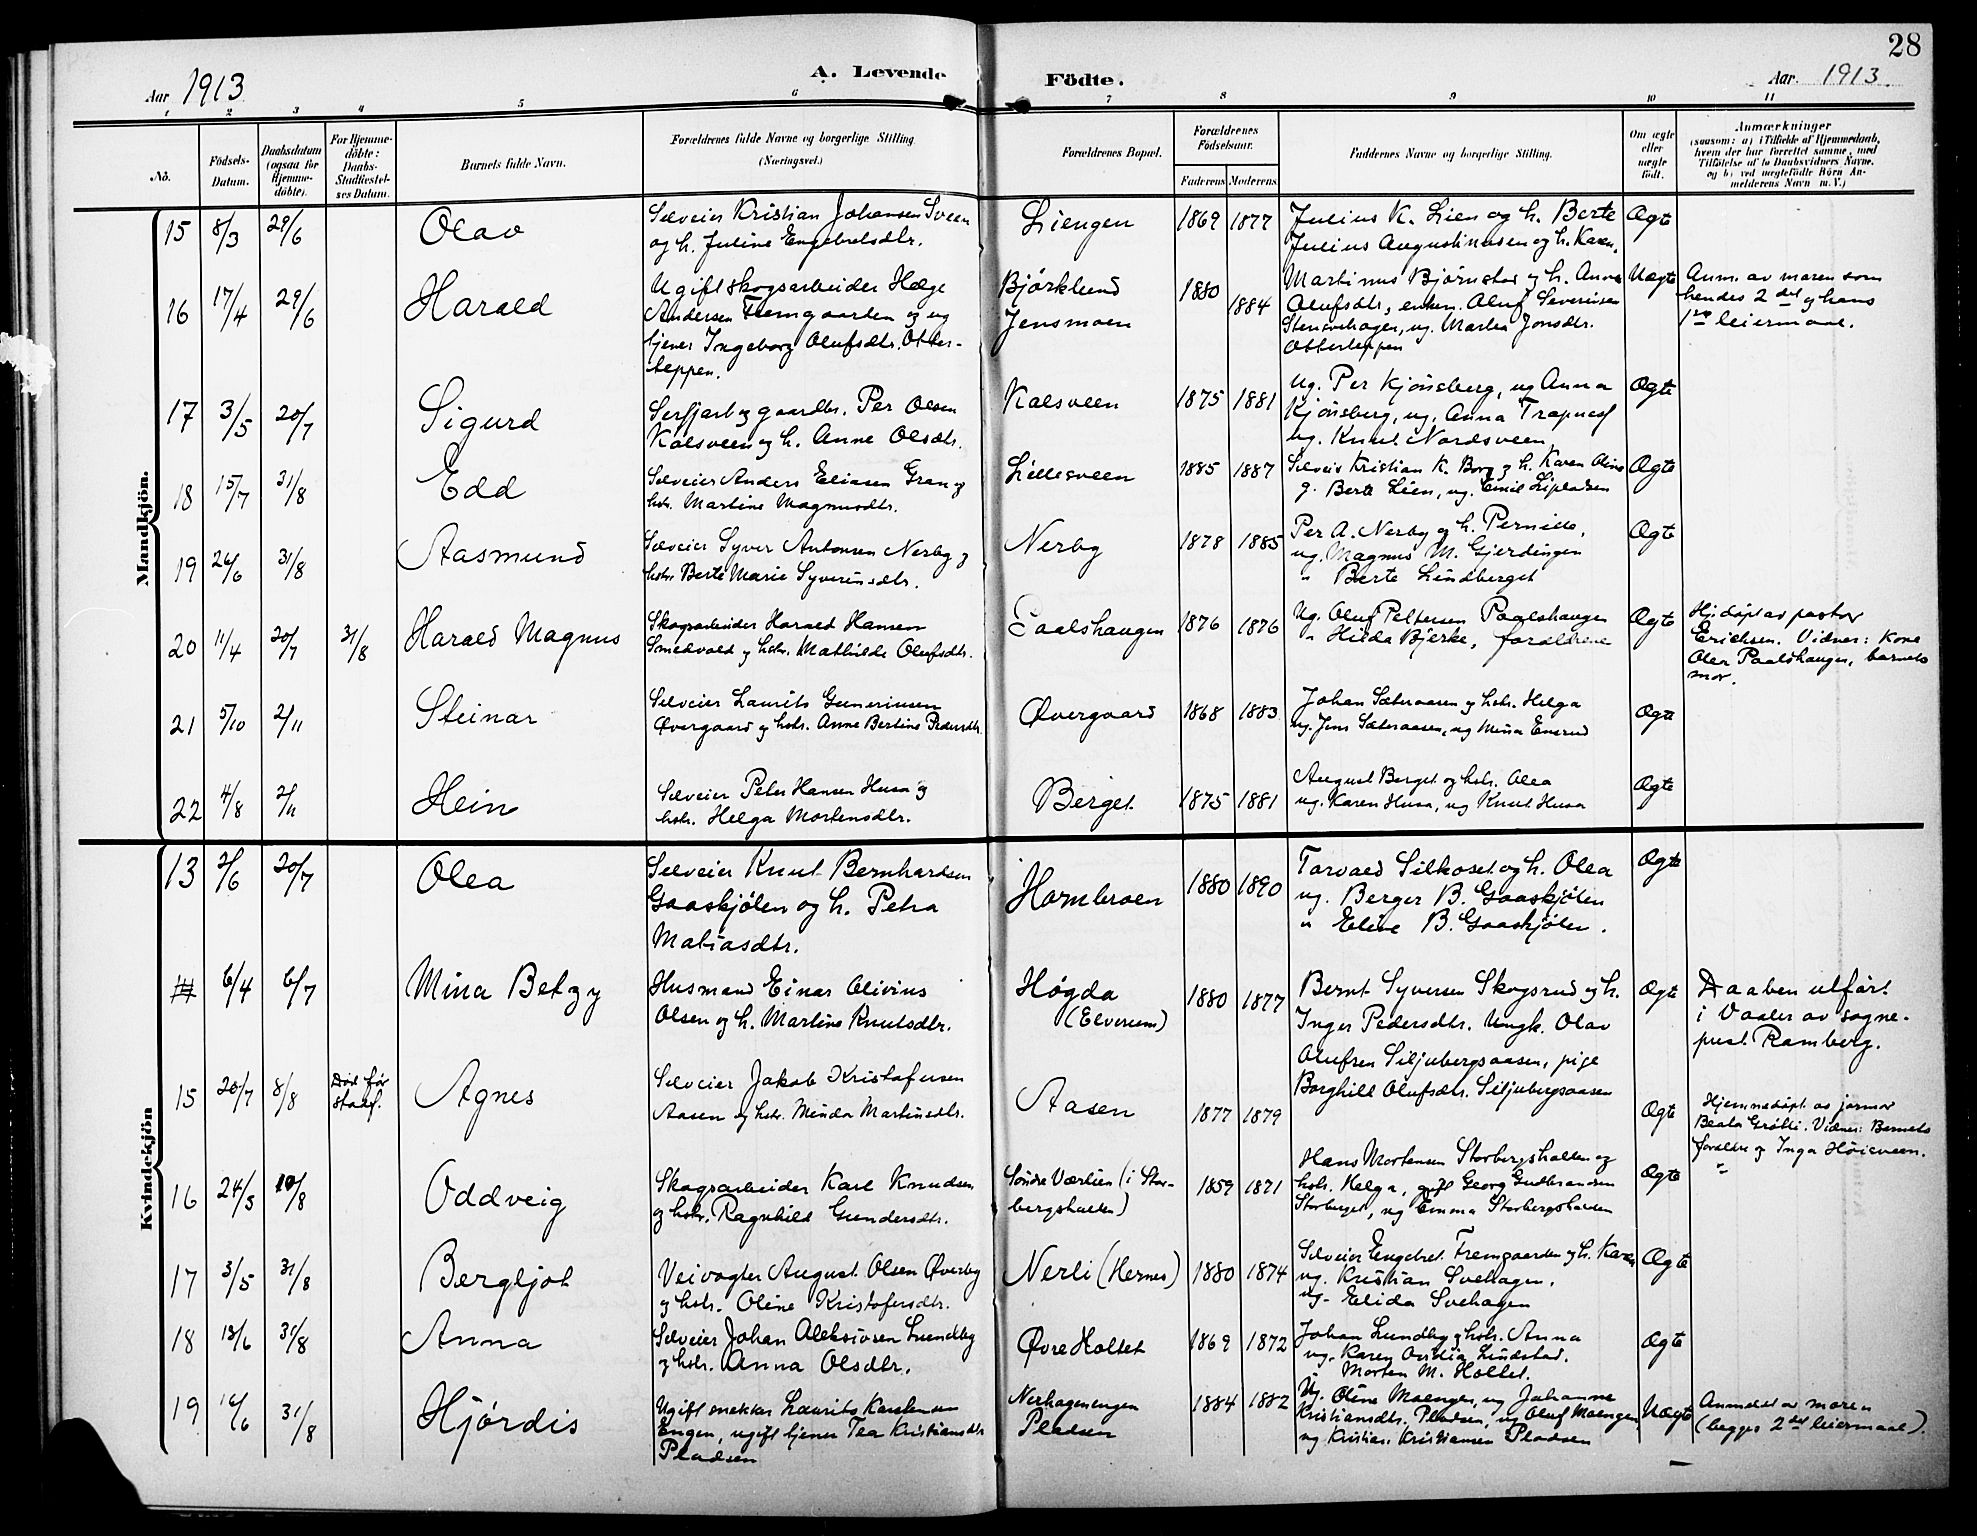 28
Aar 1913
A. Levende
Födte.
Aar. 1913
1 2 3 4 5 6 7 8 9 10 11
No.
Födsels-
Datum.
Daabsdatum
(ogsaa for
Hjemme-
döbte).
For Hjemme-
döbte:
Daabs-
Stadfæstel-
ses Datum.
Barnets fulde Navn.
Forældrenes fulde Navne og borgerlige Stilling
(Næringsvei.)
Forældrenes Bopæl.
Forældrenes
Fødselsaar.
Faderens Moderens
Faddernes Navne og borgerlige Stilling.
Om ægte
eller
uægte
födt.
Anmærkninger
(saasom: a) i Tilfælde af Hjemmedaab,
hvem der har forrettet samme, med
Tilföielse af to Daabsvidners Navne.
og b) ved uægtefödte Börn An-
melderens Navn m. V.)
Mandkjön.
15 8/3 29/6 Olav
Selveier Kristian Johansen Sveen
og h. Juline Engebretsdtr.
Liengen 1869 1877
Julius K. Lien og h. Berte
Julius Augustinussen og h. Karen.
Ægte
16 17/4 29/6 Harald
Ugift skogsarbeider Helge
Andersen Fremgaarden og ug
tjener Ingeborg Olufsdtr. Otter-
teppen.
Bjørklund
Jensmoen
1880 1884
Martinus Bjørnstad og h. Anna
Olufsdtr, enkem. Oluf Severinsen
Stensvehagen, ug. Martea Jonsdtr.
Otterteppen
Uægte
Anm. av moren som
hendes 2det og hans
1ste leiermaal.
17 3/5 20/7 Sigurd
gaardbr. Per Olsen
Kalsveen og h. Anne Olsdtr.
Kalsveen 1875 1881
Ug. Per Kjønsberg, ug Anna
Kjønsberg, ug. Anna Trapnes
ug. Knut Nordsveen
Ægte
18 15/7 31/8 Edd
Selveier Anders Eliasen Gran og
hstr. Martine Magnusdtr.
Lillesveen 1885 1887
Selveier Kristian K. Borg og h. Karen Oline
g. Berte Lien, ug. Emil
Ægte
19 26/6 31/8 Aasmund
Selveier Syver Antonsen Nerby og
hstr Berte Marie Syverinsdtr.
Nerby 1878 1885
Per A. Nerby og h. Pernille,
ug. Magnus M. Gjerdingen
" Berte Lindberget
Ægte
20 11/4 20/7 31/8 Harald Magnus
Skogsarbeider Harald Hansen
Smedvold og hstr. Mathilde Olufsdtr.
Paalshaugen 1876 1876
Ug. Oluf Pettersen Paalshaugen
" Hilda Bjerke, forældrene
Ægte
Hjdøpt av pastor
Erichsen. Vidner: Kone
Olea Paalshaugen, barnets
mor.
21 5/10 2/11 Steinar
Selveier Laurits Gunerinsen
Øvergaard og hstr. Anne Bertine Pedersdtr.
Øvergaard 1868 1883
Johan Sæteraasen og hstr. Helga
ug. Jens Sæteraasen, ug Mina Enerud
Ægte
22 4/8 2/11 Hein
Selveier Peter Hansen Husa og
hstr. Helga Mortensdtr.
Berget 1875 1881
August Berget og hstr. Olea
ug. Karen Husa, ug Knut Husa
Ægte
Kvindekjön
13 2/6 20/7 Olea
Selveier Knut Bernhardsen
Gaaskjølen og h. Petra
Matiasdtr.
Hombroen 1880 1890
Torvald Silkoset og h. Olea
ug. Berger B. Gaaskjølen
" Eline B. Gaaskjølen.
Ægte
6/4 6/7 Mina Betzy
Husmand Einar Olivius
Olsen og h. Martine Knutsdtr.
Høgda
(Elverum)
1880 1877
Bernt Syversen Skogsrud og h.
Inger Pedersdtr. Ungk. Olav
Olufsen Siljubergsaasen, pige
Borghild Olufsdtr. Siljubergsaasen
Ægte
Daaben utført
i Vaaler av sogne-
prest Ramberg.
15 20/7 8/8
Død før
stadf.
Agnes
Selveier Jakob Kristofersen
Aasen og hstr. Minda Martinsdtr.
Aasen 1877 1879
Ægte
Hjemmedøpt av jormor
Beata Grøtli. Vidner: Barnets
forældre og Inga Høiesveen.
16 24/5 10/8 Oddveig
Skogsarbeider Karl Knudsen
og hstr. Ragnhild Gundersdtr.
Søndre Værlien (i Stor-
bergshallen)
1859 1871
Hans Mortensen Storbergshallen og
hstr. Helga, gift Georg Gudbrandsen
Storberget, ug Emma Storbergshallen
Ægte
17 3/5 31/8 Bergljot
Veivogter August Olsen Øverby
og hstr. Oline Kristofersdtr.
Nerli (Hernes) 1880 1874
Selveier Engebret Fremgaarden og h. Karen
ug. Kristian Svehagen.
ug. Elida Svehagen
Ægte
18 18/6 31/8 Anna
Selveier Johan Aleksiusen Lundby
og hstr. Anna Olsdtr.
Øvre Holtet 1869 1872
Johan Lundby og hstr. Anna
ug. Karen Lindstad.
Morten M. Holtet.
Ægte
19 16/6 31/8 Hjørdis
Ugift snekker Laurits Karstensen
Engen, ugift tjener Tea Kristiansdtr
Pladsen
Nerhagenengen
Pladsen
1884 1882
Ug. Oline Moengen, ug Johanne
Kristiansdtr. Pladsen, ug Oluf Moengen,
ug Kristian Kristiansen Pladsen
Uægte
Anmeldt av moren
(begges 2det leiermaal).